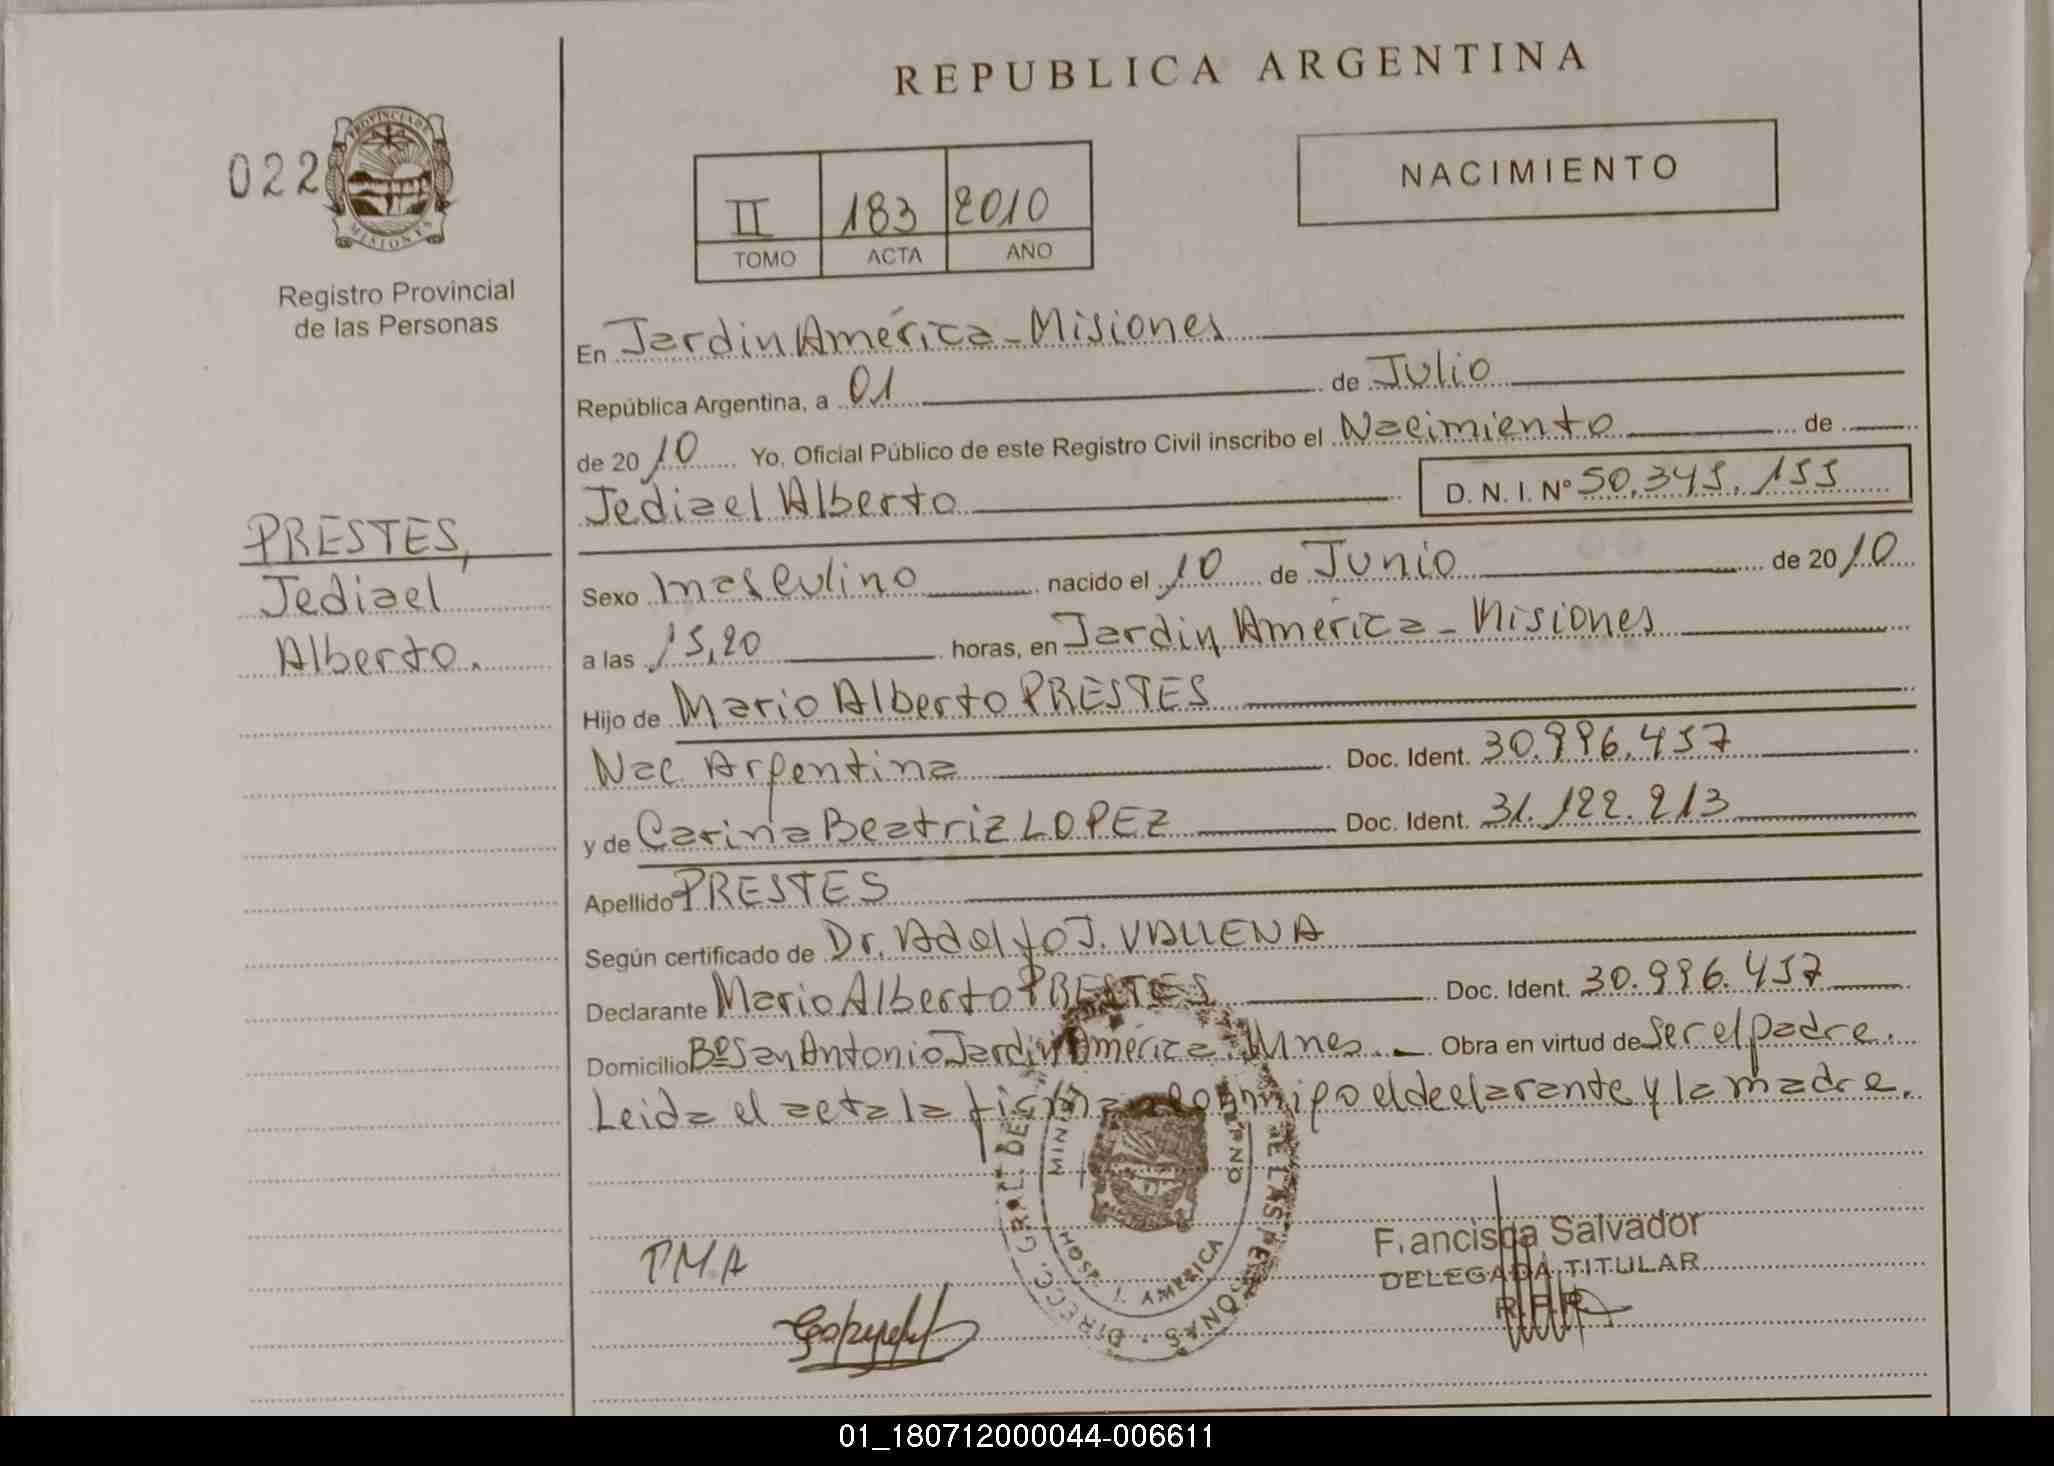 REPUBLICA ARGENTINA
022
PROVINCIA DE
MISIONES
Registro Provincial
de las Personas
II 183 2010
TOMO ACTA AÑO
NACIMIENTO
PRESTES,
Jediael
Alberto.
En Jardin América - Misiones
República Argentina, a 01 de Julio
de 2010 Yo, Oficial Público de este Registro Civil inscribo el Nacimiento de
Jediael Alberto D. N. I. Nº 50.345.155
Sexo masculino nacido el 10 de Junio de 2010
a las 15,20 horas, en Jardin América - Misiones
Hijo de Mario Alberto PRESTES
Nac. Argentina Doc. Ident. 30.996.457
y de Carina Beatriz LOPEZ Doc. Ident. 31.122.213
Apellido PRESTES
Según certificado de Dr. Adolfo J. VALLENA
Declarante Mario Alberto PRESTES Doc. Ident. 30.996.457
Domicilio Bº San Antonio Jardin América. Mnes. Obra en virtud de Ser el padre.
Leida el acta la firman conmigo el declarante y la madre.
DIRECC. GRAL. DE LAS PERSONAS
HOSP. J. AMERICA
PMA
Francisca Salvador
DELEGADA TITULAR
R.P.P.
01_180712000044-006611